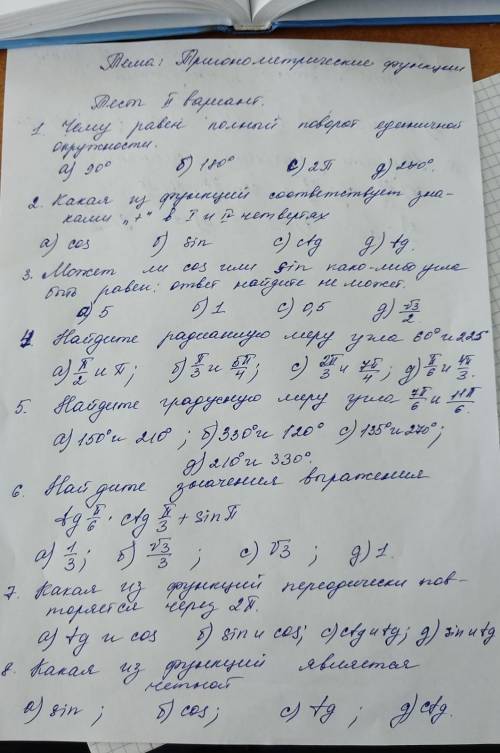 Тема: Тригонометрические функции
Тесты II вариант.
1. Чему равен полный поворот единичной
окружности.
а) 90° б) 180° с) 2π д) 270°.
2. Какая из функций соответствует зна-
ками „+" в I и IV четвертях
а) cos б) sin с) ctg д) tg.
3. Может ли cos или sin како-либо угла
быть равен: ответ найдите не может.
а) 5 б) 1 с) 0,5 д) √3/2
4. Найдите радианную меру угла 60° и 225
а) π/2 и π; б) π/3 и 5π/4; с) 2π/3 и 7π/4; д) π/6 и 4π/3.
5. Найдите градусную меру угла 7π/6 и 11π/6.
а) 150° и 210°; б) 330° и 120° с) 135° и 270°;
д) 210° и 330°.
6. Найдите значения выражения
tg π/6 · ctg π/3 + sin π
а) 1/3; б) √3/3; с) √3; д) 1.
7. Какая из функций переодически пов-
торяется через 2π.
а) tg и cos б) sin и cos; с) ctg и tg; д) sin и tg
8. Какая из функций является
четной
а) sin; б) cos; с) tg; д) ctg.